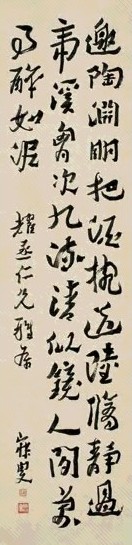 邀陶淵明把酒椀送陸脩靜過
虎溪胷次九流清似鏡人間萬
事醉如泥
丞仁兄雅屬
寐叟